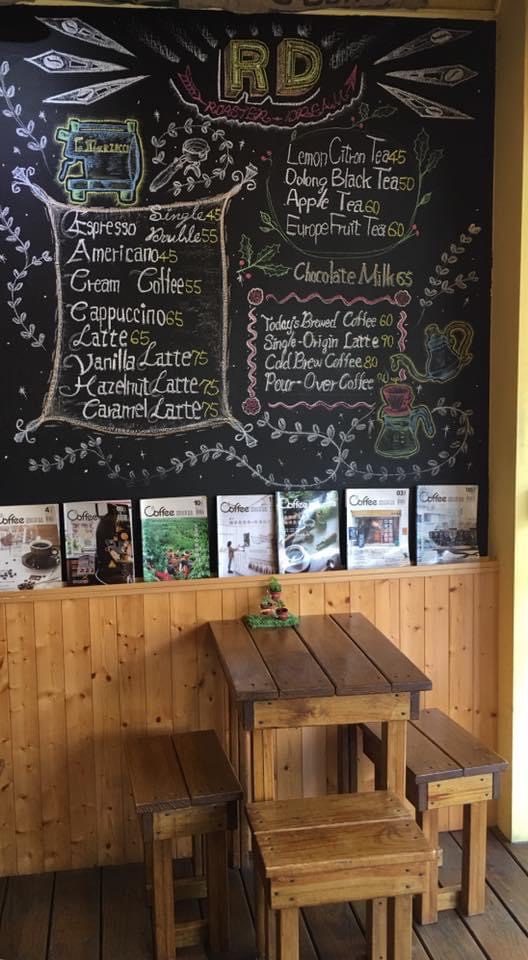 RD
ROASTER
Espresso Single 45
Double 55
Americano 45
Cream Coffee 55
Cappuccino 65
Latte 65
Vanilla Latte 75
Hazelnut Latte 75
Caramel Latte 75
Lemon Citron Tea 45
Oolong Black Tea 50
Apple Tea 60
Europe Fruit Tea 60
Chocolate Milk 65
Today's Brewed Coffee 60
Single-Origin Latte 90
Cold Brew Coffee 80
Pour-Over Coffee
Coffee
Coffee
Coffee
Coffee
Coffee
Coffee
Coffee